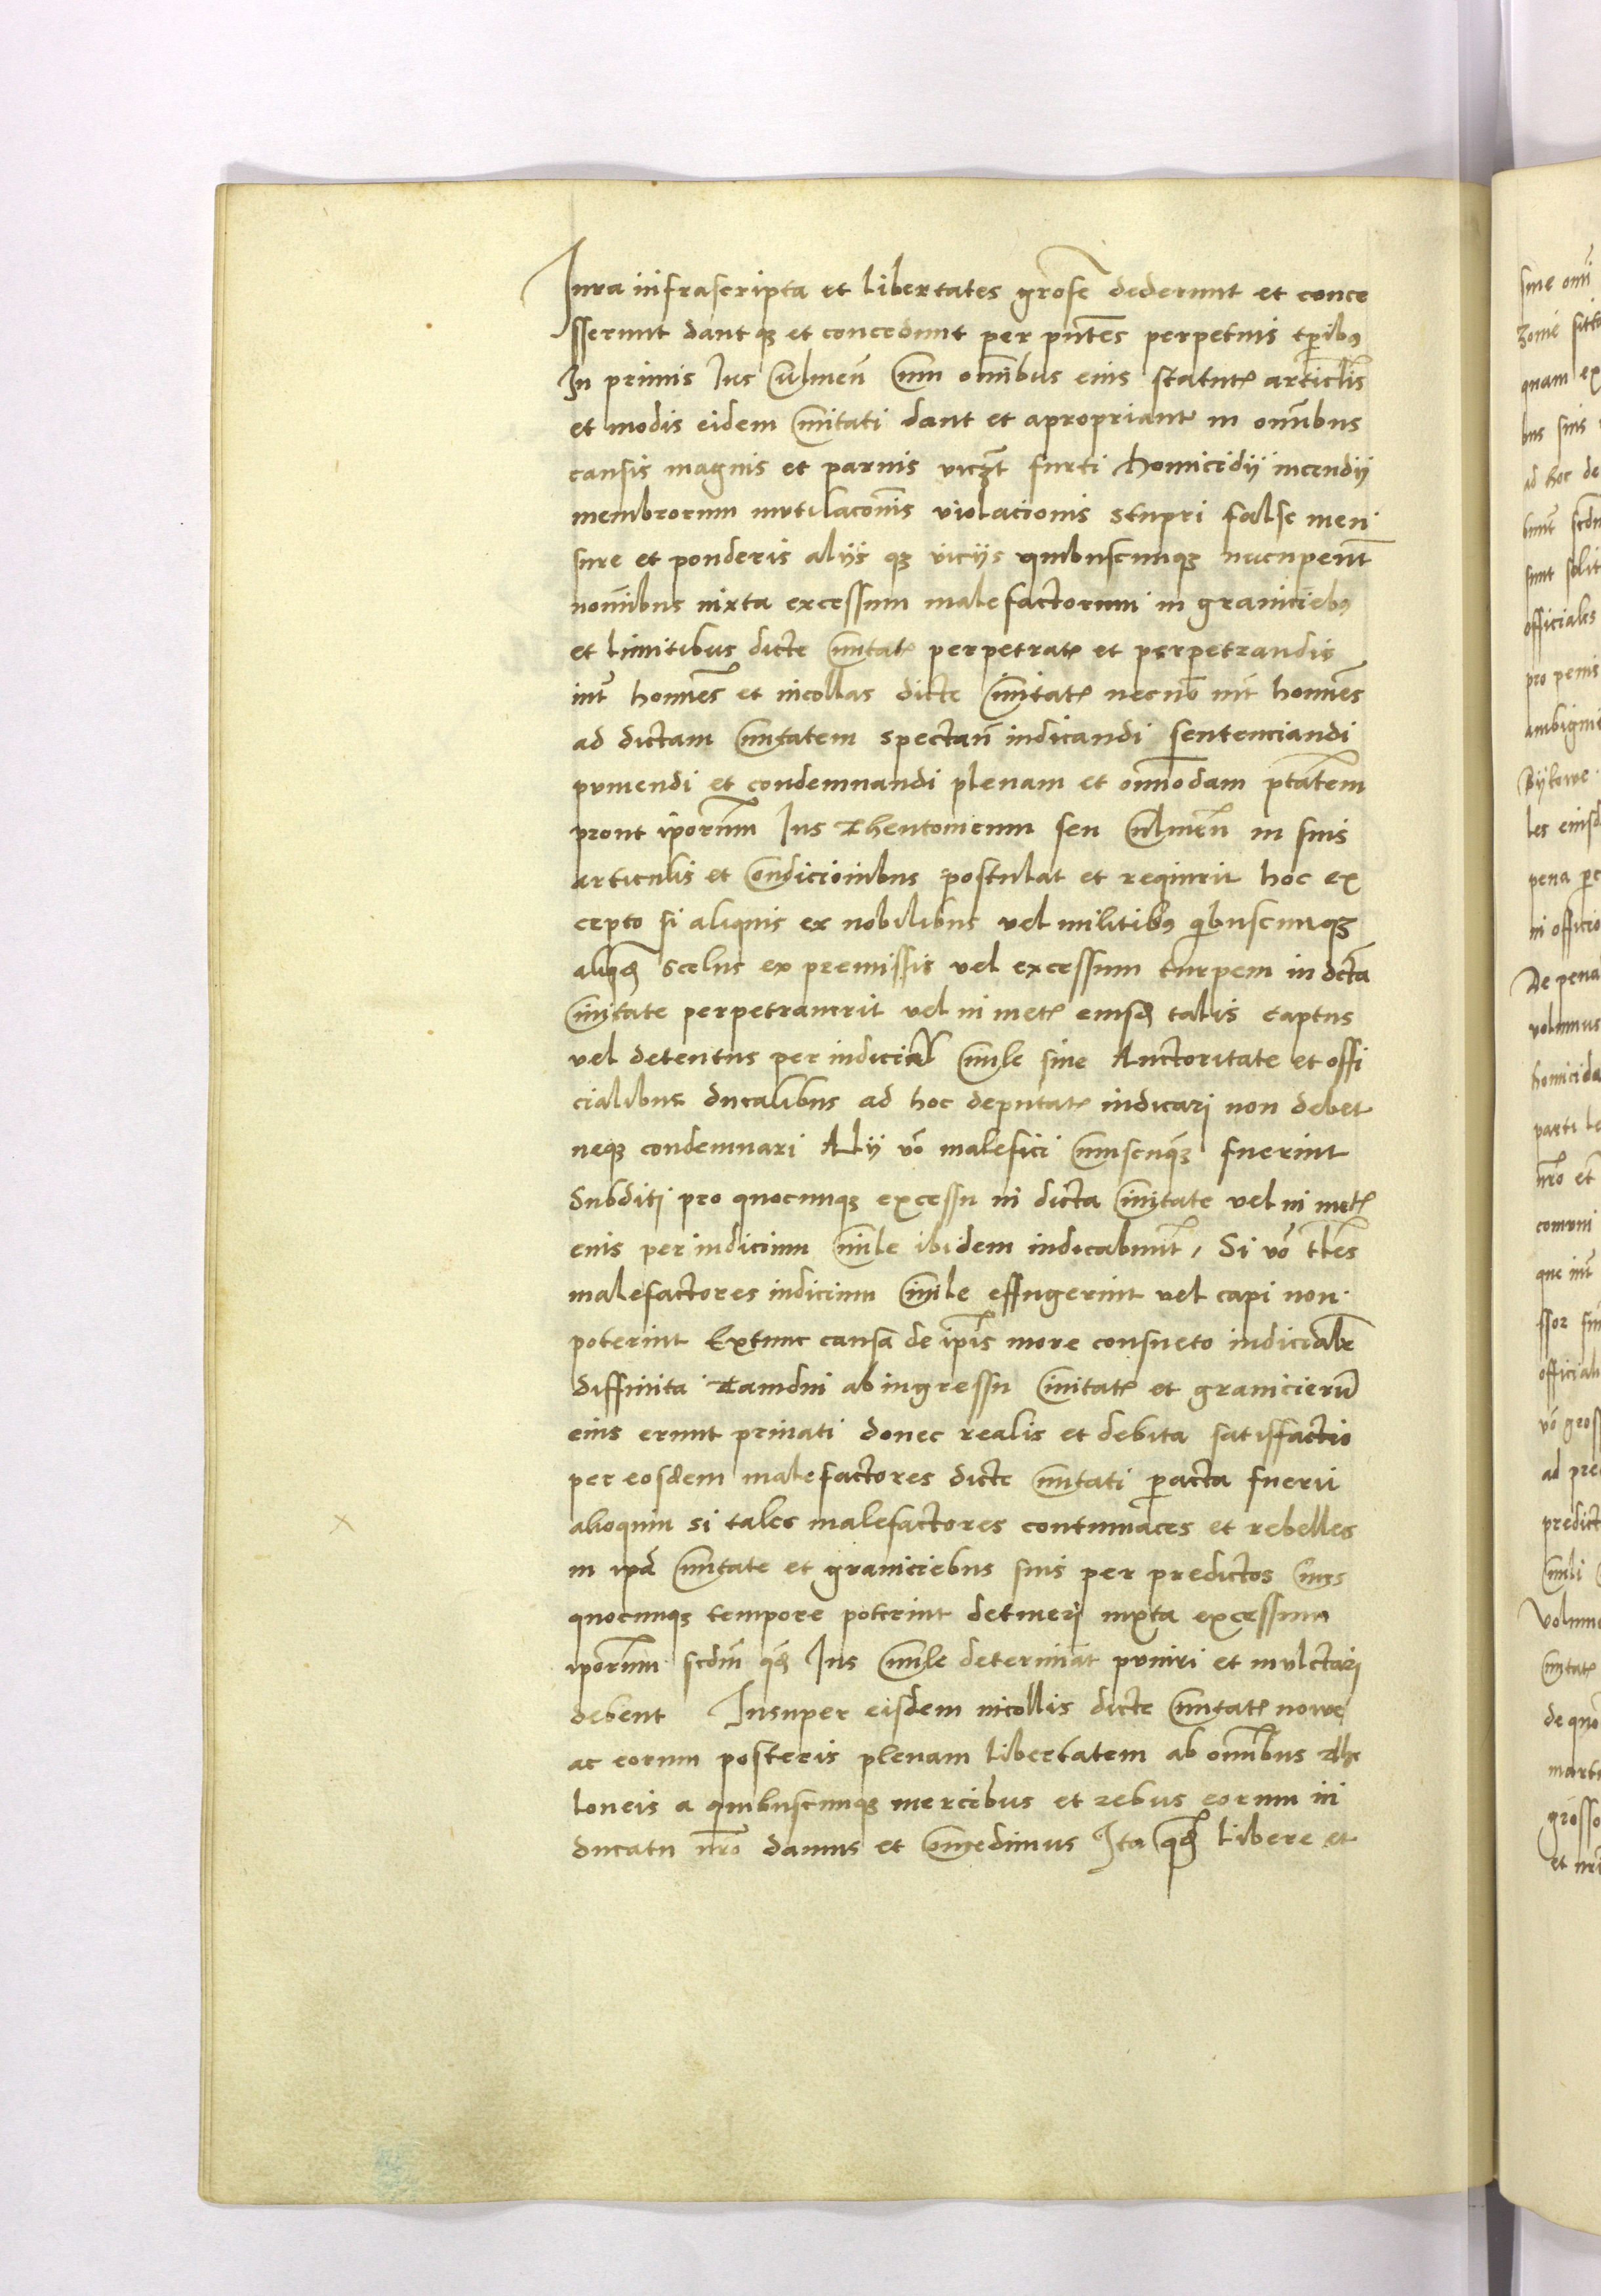 Iura infrascripta et libertates grōse dederunt et conce
sserunt dantqȝ et concedunt per pn̄tes perpetuis tp̄ribꝫ
In primis Ius Culmen̄ Cum om̄ibus eius statutꝭ articl̄is
et modis eidem Ciuitati dant et apropriant in om̄ibus
causis magnis et paruis vicꝫt furti homicidij incendij
membrorum mutilacōnis violacionis stupri false men
sure et ponderis alijs qȝ vicijs quibuscunqȝ nuncupent̄
nomībus iuxta excessum malefactorum in graniciebꝫ
et limitibus dicte Ciuitatꝭ perpetratꝭ et perpetrandis
int̄ homīes et incollas dicte Ciuitatꝭ necnō int̄ homīes
ad dictam Ciuitatem spectan̄ iudicandi sentenciandi
puniendi et condemnandi plenam et om̄imodam ptātem
prout ip̄orum Ius Theutonicum seu Culmen̄ in suis
articulis et Condicioībus postulat et requirit hoc ex
cepto si aliquis ex nobilibus vel militibꝫ qībuscunqȝ
aliqđ scelus ex premissis vel excessum turpem in dc̄ta
Ciuitate perpetrauerit vel in metꝭ eiusđ talis captus
vel detentus per iudiciū Ciuile sine Auctoritate et offi
cialibus ducalibus ad hoc deputatꝭ iudicari non debet
neqȝ condemnari Alij v̄o malefici Cuiuscūqȝ fuerint
Subditi pro quocunqȝ excessu in dicta Ciuitate vel in metꝭ
eius per iudicium Ciuile ibidem iudicabunt̄, Si v̄o tl̄es
malefactores iudicium Ciuile effugerint vel capi non
poterint Extunc causa de ip̄is more consueto iudicialr̄
diffinita Tamdiu ab ingressu Ciuitatꝭ et granicierū
eius erunt priuati donec realis et debita satisfactio
per eosdem malefactores dicte Ciuitati p̱acta fuerit
alioquin si tales malefactores contumaces et rebelles
in ip̄a Ciuitate et graniciebus suis per predictos Ciues
quocunqȝ tempore poterint detineri iuxta excessum
ip̄orum scdm̄ qđ Ius Ciuile determinat puniri et mulctari
debent Insuper eisdem incollis dicte Ciuitatꝭ nowe
ac eorum posteris plenam libertatem ab om̄ibus The
loneis a quibuscunqȝ mercibus et rebus eorum in
ducatu nr̄o damus et Concedimus Ita qđ libere et